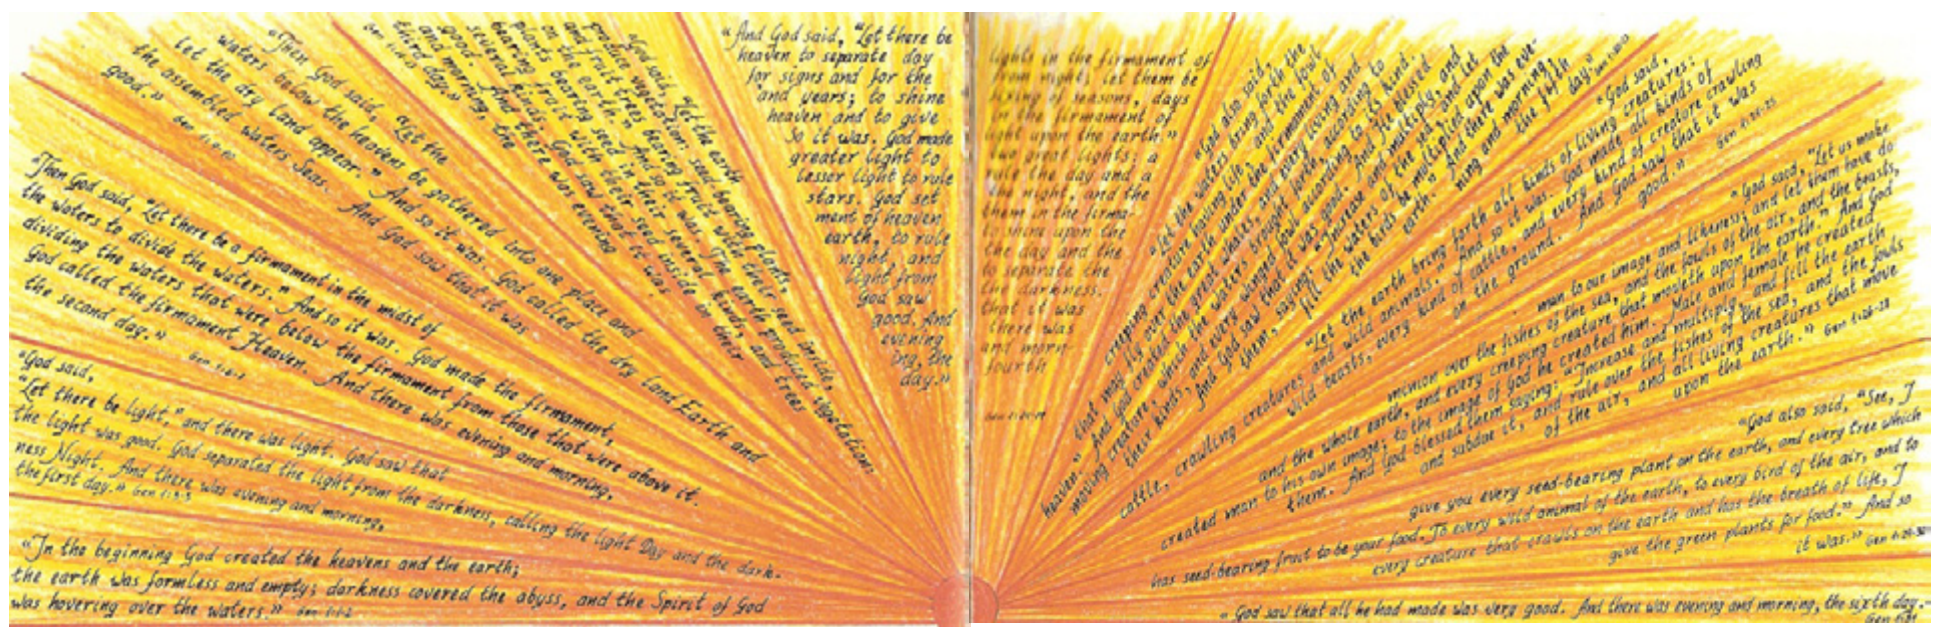 "In the beginning God created the heavens and the earth;
the earth was formless and empty; darkness covered the abyss, and the Spirit of God
was hovering over the waters." Gen 1:1-2
"God said,
"Let there be light," and there was light. God saw that
the light was good. God separated the light from the darkness, calling the light Day and the dark-
ness Night. And there was evening and morning,
the first day." Gen 1:3-5
"Then God said, "Let there be a firmament in the midst of
the waters to divide the waters." And so it was. God made the firmament,
dividing the waters that were below the firmament from those that were above it.
God called the firmament Heaven. And there was evening and morning,
the second day." Gen 1:6-8
"Then God said, "Let the
waters below the heavens be gathered into one place and
let the dry land appear." And so it was. God called the dry land Earth and
the assembled waters Seas. And God saw that it was
good." Gen 1:9-10
"God said, "Let the earth
produce vegetation: seed bearing plants,
and fruit trees bearing fruit with their seed inside,
on the earth." And so it was. The earth produced vegetation:
plants bearing seed in their several kinds, and trees
bearing fruit with their seed inside in their
several kinds. God saw that it was
good. And there was evening
and morning, the
third day."
"And God said, "Let there be lights in the firmament of
heaven to separate day from night; let them be
for signs and for the fixing of seasons, days
and years; to shine in the firmament of
heaven and to give light upon the earth."
So it was. God made two great lights: a
greater light to rule the day and a
lesser light to rule the night, and the
stars. God set them in the firma-
ment of heaven to shine upon the
earth, to rule the day and the
night, and to separate the
light from the darkness.
God saw that it was
good. And there was
evening and morn-
ing, the fourth
day."
"God also said,
"Let the waters bring forth the
creeping creature having life, and the fowl
that may fly over the earth under the firmament of
heaven." And God created the great whales, and every living and
moving creature, which the waters brought forth, according to
their kinds, and every winged fowl according to its kind.
And God saw that it was good. And He blessed
them, saying: "Increase and multiply, and
fill the waters of the sea; and let
the birds be multiplied upon the
earth." And there was eve-
ning and morning
the fifth
day."
"God said,
"Let the earth bring forth all kinds of living creatures:
cattle, crawling creatures and wild animals." And so it was. God made all kinds of
wild beasts, every kind of cattle, and every kind of creature crawling
on the ground. And God saw that it was
good." Gen 1:24-25
"God said, "Let us make
man to our image and likeness; and let them have do-
minion over the fishes of the sea, and the fowls of the air, and the beasts,
and the whole earth, and every creeping creature that moveth upon the earth." And God
created man to his own image; to the image of God he created him. Male and female he created
them. And God blessed them saying: "Increase and multiply, and fill the earth
and subdue it, and rule over the fishes of the sea, and the fowls
of the air, and all living creatures that move
upon the earth." Gen 1:26-28
"God also said, "See, I
give you every seed-bearing plant on the earth, and every tree which
has seed-bearing fruit to be your food. To every wild animal of the earth, to every bird of the air, and to
every creature that crawls on the earth and has the breath of life, I
give the green plants for food." And so
it was." Gen 1:29-30
"God saw that all he had made was very good. And there was evening and morning, the sixth day."
Gen 1:31